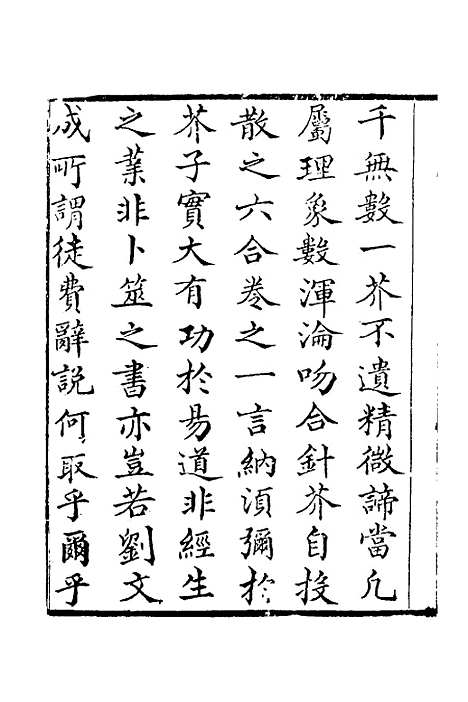 千無數一芥不遺精微諦當凡
屬理象數渾淪吻合針芥自投
散之六合卷之一言納湏彌扵
芥子實大有功扵易道非經生
之業非卜筮之書亦豈若劉文
成所謂徒費辭說何取乎爾乎